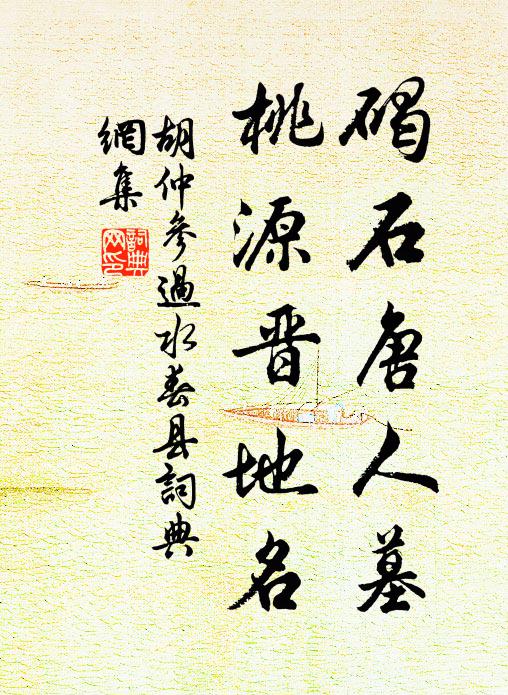 碣石唐人墓
桃源晋地名
胡仲参過水春县詞典
網集
詞典网印